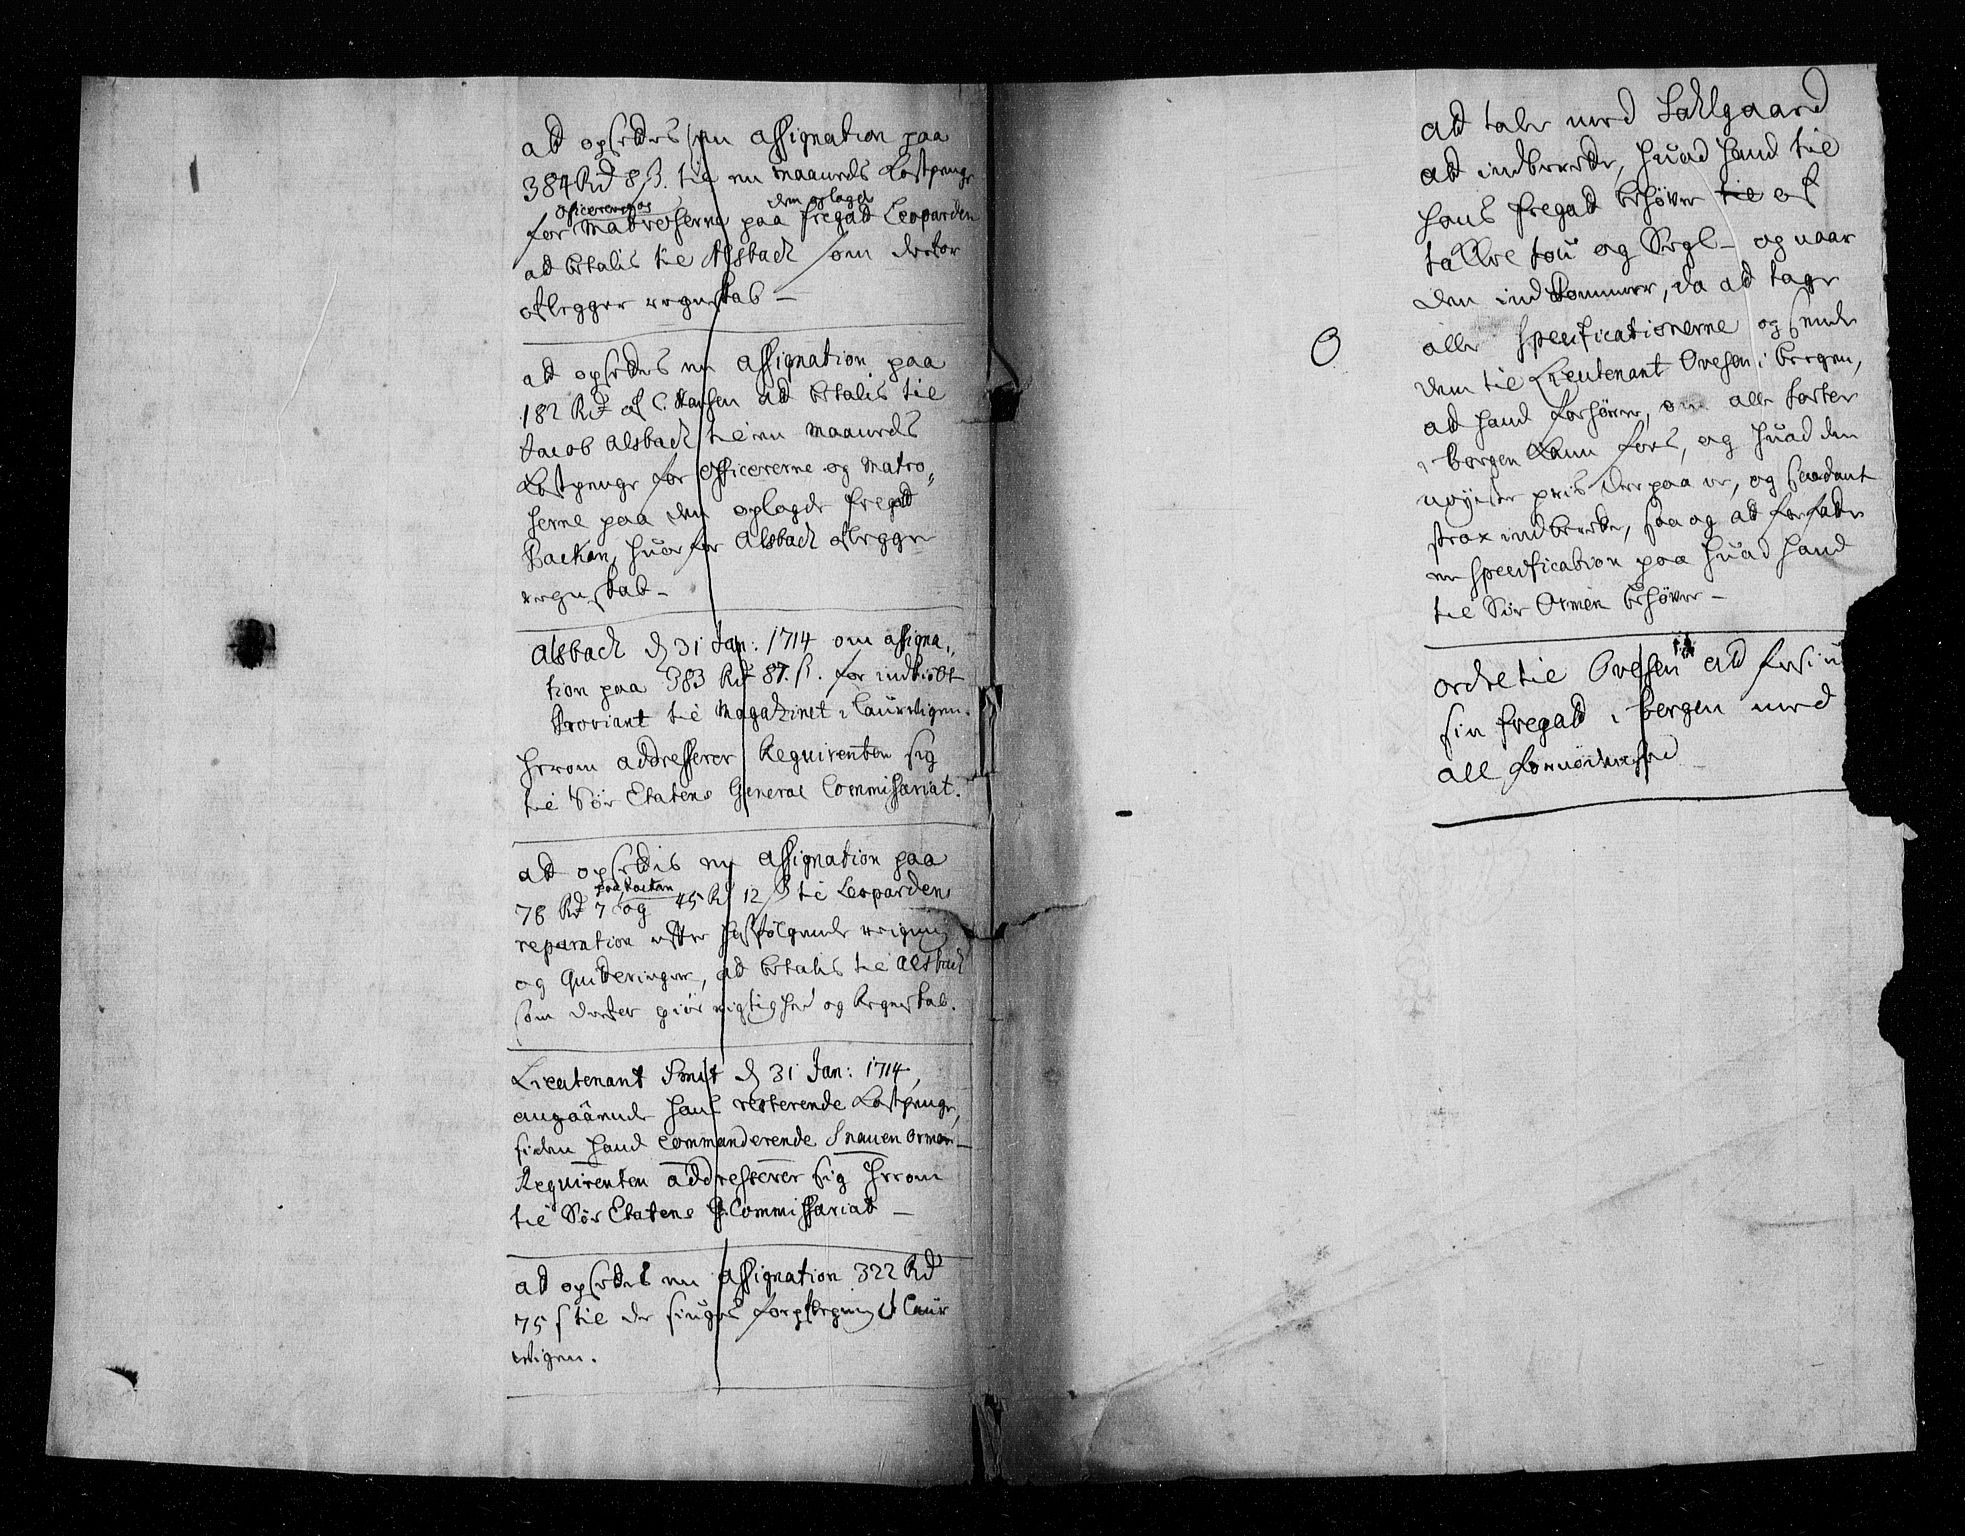 ad opsettes en assignation paa
384 Rd 8 β. til en maaneds Kostpenge
officererne og den oplagde
for Matroserne paa fregad Leoparden
ad betalis til Alsbach som derfor
aflegger regnskab –
ad opsettes en assignation paa
182 Rd af C. Hansen ad betalis til
Jacob Alsbach til en maaneds
Kostpenge for officererne og Matro„
serne paa den oplagde fregad
Packan, huorfor Alsbach aflegger
regnskab –
Alsbach d 31 Jan: 1714 om assigna„
tion paa 383 Rd 87. β. for indkiøbt
Proviant til Magazinet i Laurwigen.
herom addresserer Requirenten sig
til Søe Etatens General Commissariat.
ad opsettis en assignation paa
paa Packan
76 Rd 7 og 45 Rd 12 β til Leopardens
reparation efter hosfølgende regning
og Quiteringer, ad betalis til Alsbach
som derfor giør rigtighed og Regnskab.
Lieutenant Smit d 31 Jan: 1714,
angaaende hans resterende Kostpenge,
siden hand commanderende Snauen Ormen –
Requirenten addresserer sig herom
til Søe Etatens G. Commissariat –
ad opsettes en assignation 322 Rd
75 s til de siuges forplegning i Laur
wigen.
ad tale med
ad indberette, huad hand til
hans fregad behøver til af
takkel tou og Segl – og naar
den indkommer, da ad tage
alle Specificationerne og sende
dem til Lieutenant Ovesen i Bergen,
ad hand forhører, om alle sorter
i Bergen kann faaes, og huad den
nøyeste priis derpaa er, og saadant
strax indberette, saa og ad forfatte
en Specification paa huad hand
til Søe Ormen behøver –
ordre til Ovesen ad forsiune
sin fregad i Bergen med
all fornødenhed
O